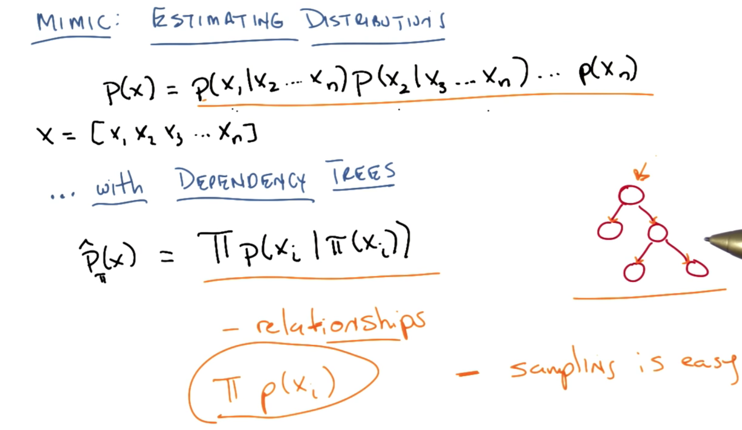 MIMIC: ESTIMATING DISTRIBUTIONS
P(x) = p(x₁|x₂ ... xₙ) p(x₂|x₃ ... xₙ) ... p(xₙ)
x = [x₁ x₂ x₃ ... xₙ]
... with DEPENDENCY TREES
p̂_π(x) = π p(xᵢ | π(xᵢ))
- relationships
π p(xᵢ)
- sampling is easy